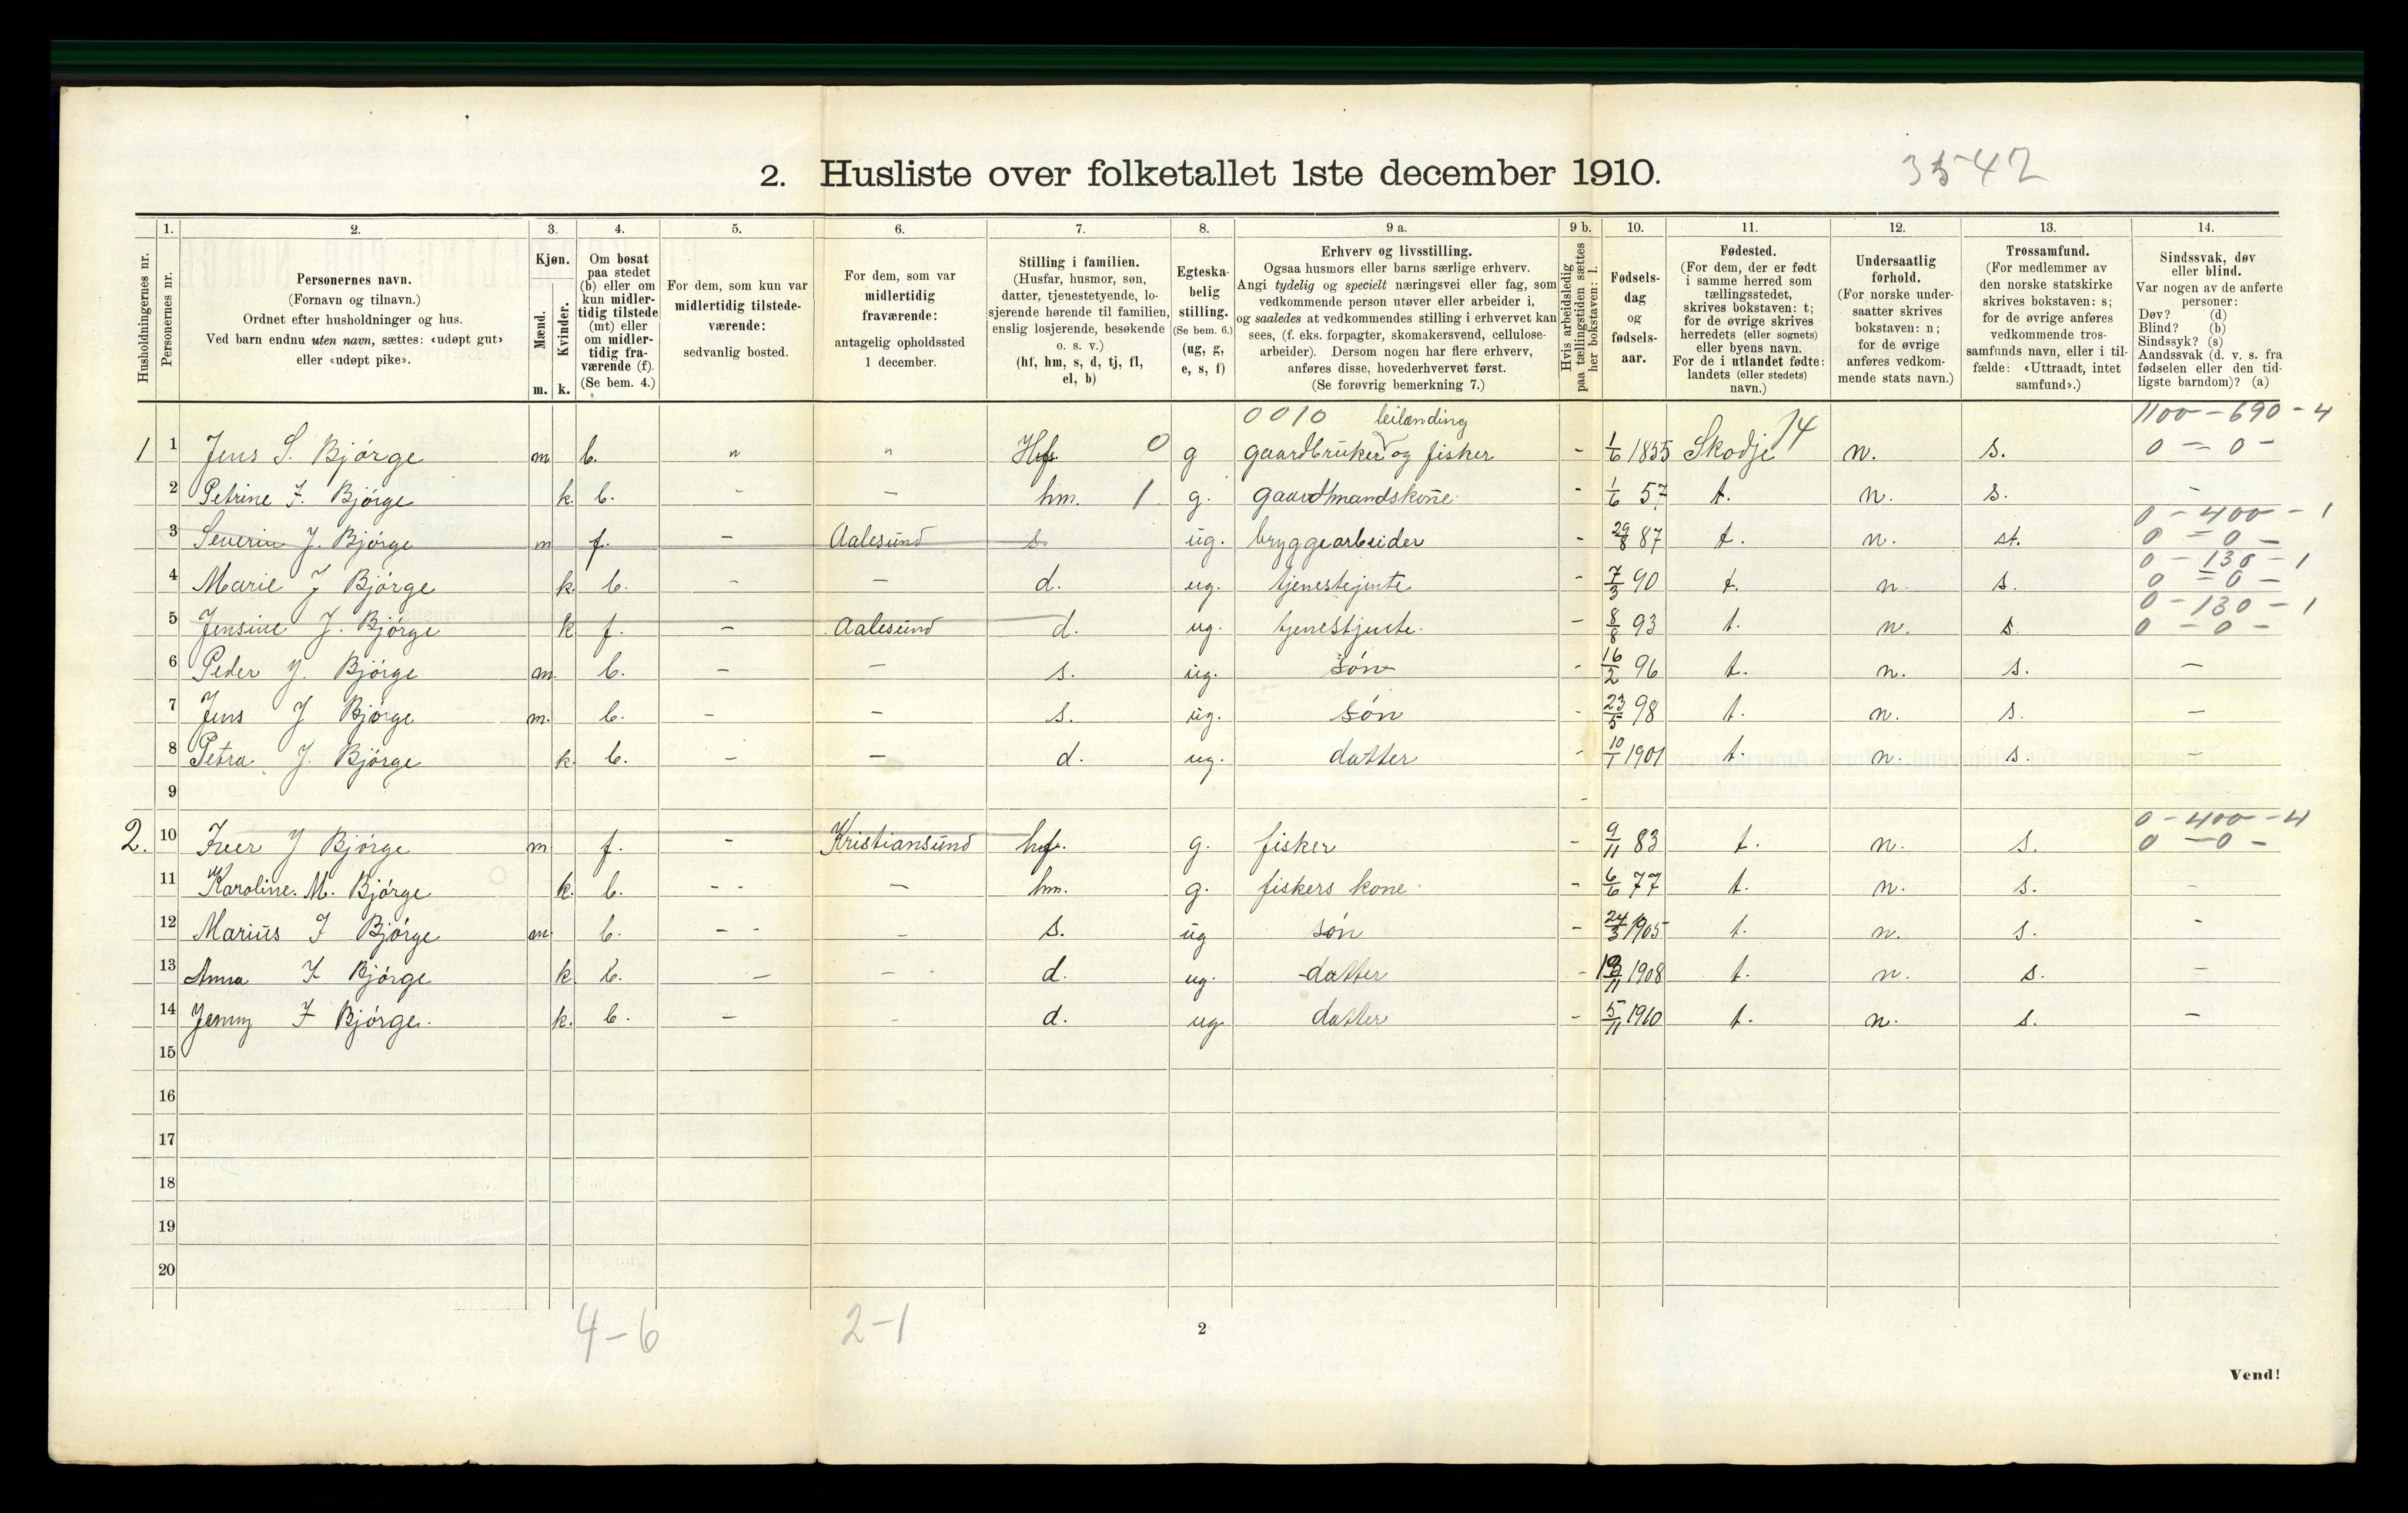 2. Husliste over folketallet 1ste december 1910.
3542
Husholdningernes nr.
1. Personernes nr.
2. Personernes navn. (Fornavn og tilnavn.) Ordnet efter husholdninger og hus. Ved barn endnu uten navn, sættes: «udøpt gut» eller «udøpt pike».
3. Kjøn. Mænd. m. Kvinder. k.
4. Om bosat paa stedet (b) eller om kun midlertidig tilstede (mt) eller om midlertidig fraværende (f). (Se bem. 4.)
5. For dem, som kun var midlertidig tilstedeværende: sedvanlig bosted.
6. For dem, som var midlertidig fraværende: antagelig opholdssted 1 december.
7. Stilling i familien. (Husfar, husmor, søn, datter, tjenestetyende, losjerende hørende til familien, enslig losjerende, besøkende o. s. v.) (hf, hm, s, d, tj, fl, el, b)
8. Egteskabelig stilling. (Se bem. 6.) (ug, g, e, s, f)
9 a. Erhverv og livsstilling. Ogsaa husmors eller barns særlige erhverv. Angi tydelig og specielt næringsvei eller fag, som vedkommende person utøver eller arbeider i, og saaledes at vedkommendes stilling i erhvervet kan sees, (f. eks. forpagter, skomakersvend, cellulosearbeider). Dersom nogen har flere erhverv, anføres disse, hovederhvervet først. (Se forøvrig bemerkning 7.)
9 b. Hvis arbeidsledig paa tællingstiden sættes her bokstaven: l.
10. Fødselsdag og fødselsaar.
11. Fødested. (For dem, der er født i samme herred som tællingsstedet, skrives bokstaven: t; for de øvrige skrives herredets (eller sognets) eller byens navn. For de i utlandet fødte: landets (eller stedets) navn.)
12. Undersaatlig forhold. (For norske undersaatter skrives bokstaven: n; for de øvrige anføres vedkommende stats navn.)
13. Trossamfund. (For medlemmer av den norske statskirke skrives bokstaven: s; for de øvrige anføres vedkommende trossamfunds navn, eller i tilfælde: «Uttraadt, intet samfund».)
14. Sindssvak, døv eller blind. Var nogen av de anførte personer: Døv? (d) Blind? (b) Sindssyk? (s) Aandssvak (d. v. s. fra fødselen eller den tidligste barndom)? (a)
0010 leilænding 1100 - 690 - 4
1 1 Jens S. Bjørge m b. " " Hf. 0 g gaardbruker og fisker - 1/6 1855 Skodje 14 n. s. 0 - 0 -
2 Petrine I. Bjørge k. b. - - hm. 1 g. gaardmandskone - 1/6 57 t. n. s. -
0 - 400 - 1
3 Severin J. Bjørge m f. - Aalesund s. ug. bryggearbeider - 29/8 87 t. n. st. 0 - 0 -
0 - 130 - 1
4 Marie J Bjørge k. b. - - d. ug. tjenestejente - 7/3 90 t. n. s. 0 - 0 -
0 - 130 - 1
5 Jensine J. Bjørge k f. - Aalesund d. ug. tjenestjente. - 8/8 93 t. n. s. 0 - 0 -
6 Peder J. Bjørge m. b. - - s. ug. søn - 16/2 96 t. n. s. -
7 Jens J Bjørge m. b. - - s. ug. søn - 23/5 98 t. n. s. -
8 Petra J. Bjørge k. b. - - d. ug. datter - 10/1 1901 t. n. s. -
9 -
0 - 400 - 4
2. 10 Iver J Bjørge m f. - Kristiansund hf. g. fisker - 9/11 83 t. n. s. 0 - 0 -
11 Karoline. M. Bjørge k. b. - - - hm. g. fiskers kone - 6/6 77 t. n. s. -
12 Marius I Bjørge m b. - - - s. ug søn - 24/3 1905 t. n. s. -
13 Anna I Bjørge k. b. - - d. ug. datter - 1908 t. n. s. -
14 Jenny I Bjørge. k. b. - - d. ug. datter - 5/11 1910 t. n. s. -
15
16
17
18
19
20
4-6 2-1
2
Vend!